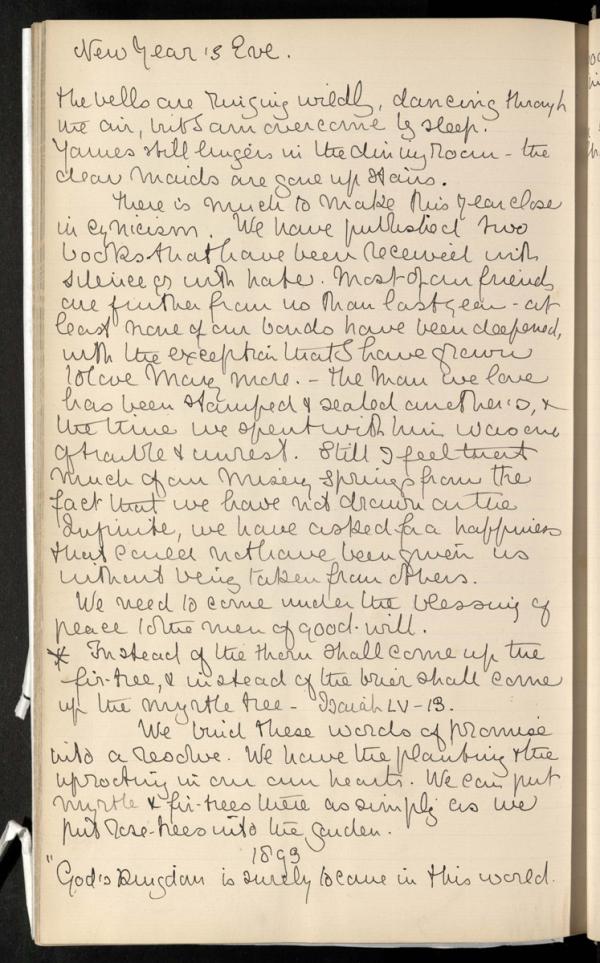 New Year's Eve.
the bells are ringing wildly, dancing through
the air, but I am overcome by sleep.
James still lingers in the dining room - the
dear maids are gone up stairs.
There is much to make this year close
in cynicism. We have published two
books that have been received with
silence or with hate. Most of our friends
are further from us than last year - at
least none of our bonds have been deepened,
with the exception that I have grown
to love Mary more. - The man we love
has been stamped & sealed another's, &
the time we spent with him was one
of trouble & unrest. Still I feel that
much of our misery springs from the
fact that we have not drawn on the
Infinite, we have asked for a happiness
that could not have been given us
without being taken from others.
We need to come under the blessing of
peace to the men of good-will.
* Instead of the thorn shall come up the
fir-tree, & instead of the brier shall come
up the myrtle tree - Isaiah LV-13.
We bind these words of promise
into a resolve. We have the planting & the
uprooting in our own hearts. We can put
myrtle & fir-trees there as simply as we
put rose-trees into the garden.
1893
"God's Kingdom is surely to come in this world.